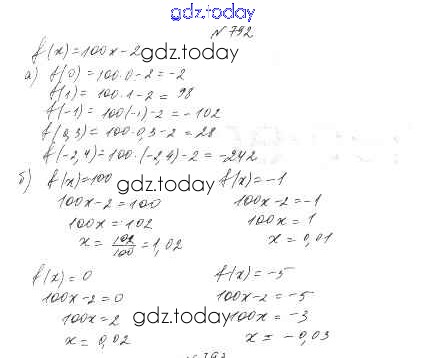 gdz.today
№ 792
f(x)=100x-2
gdz.today
а) f(0)=100·0-2=-2
f(1)=100·1-2=98
f(-1)=100(-1)-2=-102
f(0,3)=100·0,3-2=28
f(-2,4)=100·(-2,4)-2=-242
б) f(x)=100
100x-2=100
100x=102
x=102/100=1,02
gdz.today
f(x)=-1
100x-2=-1
100x=1
x=0,01
f(x)=0
100x-2=0
100x=2
x=0,02
gdz.today
f(x)=-5
100x-2=-5
100x=-3
x=-0,03